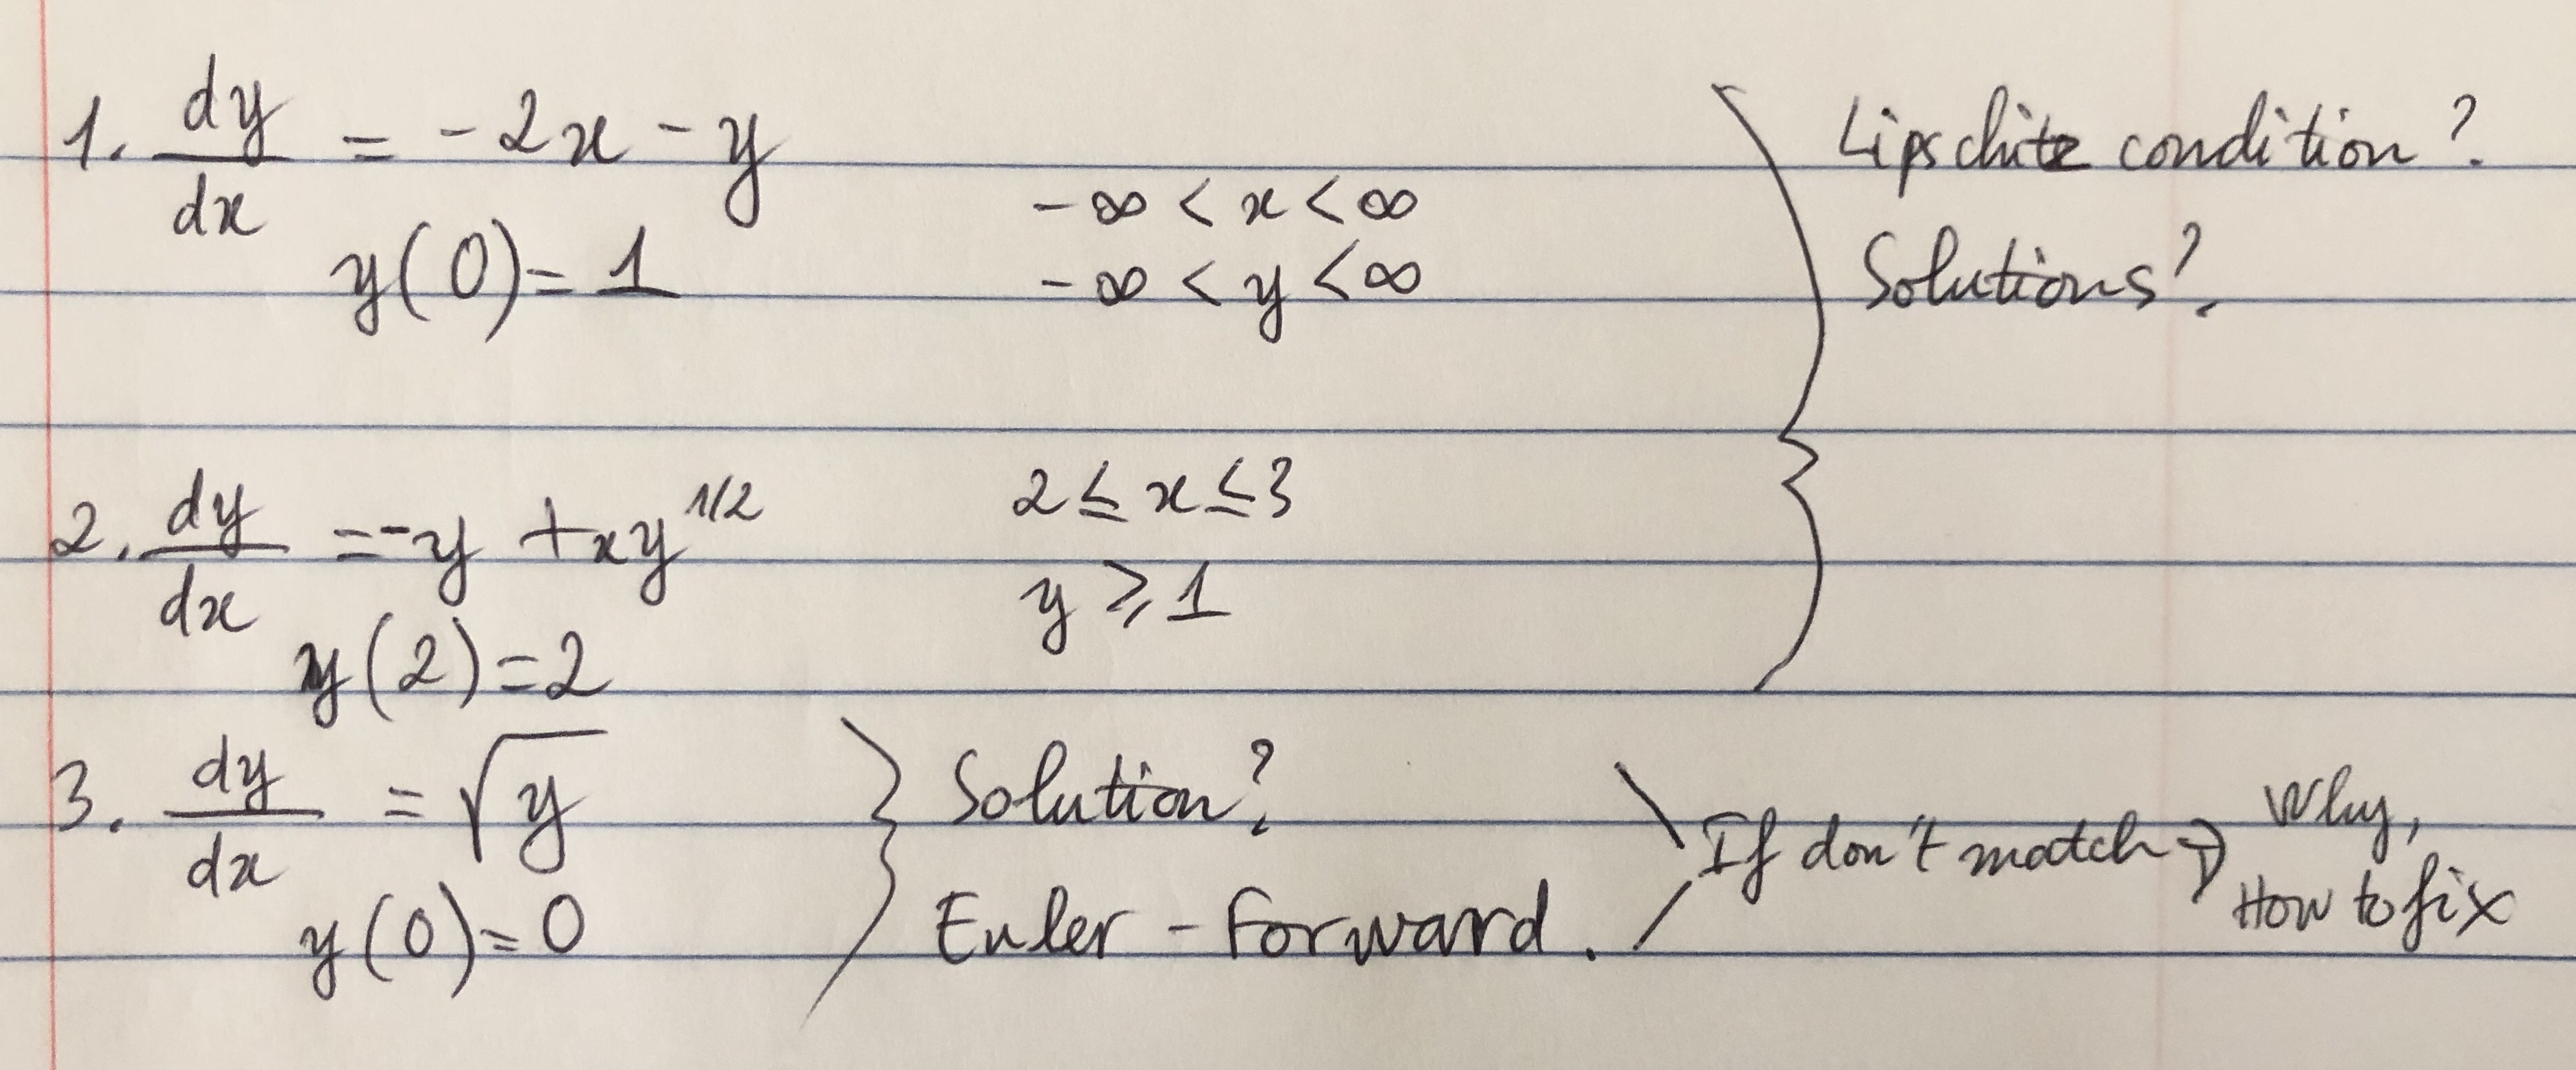 1. dy/dx = -2x - y
y(0) = 1
-∞ < x < ∞
-∞ < y < ∞
Lipschitz condition?
Solutions?
2. dy/dx = -y + xy^1/2
y(2) = 2
2 ≤ x ≤ 3
y ≥ 1
3. dy/dx = √y
y(0) = 0
Solution?
Euler - Forward.
If don't match → Why,
How to fix